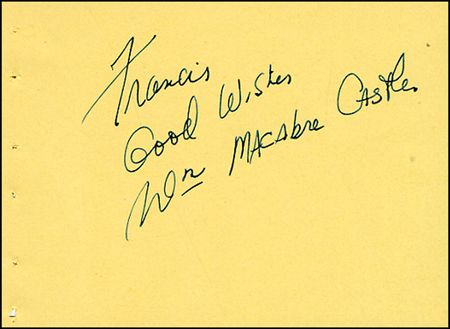 Francis
Good Wishes
Wm MACAbre CASTle